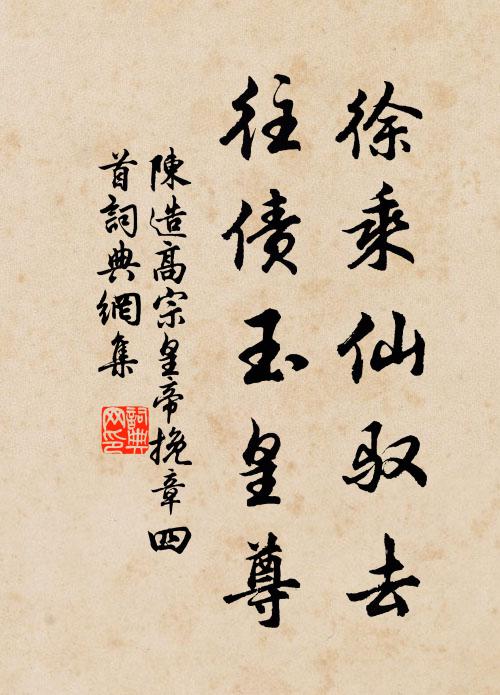 徐乘仙驭去
往債玉皇尊
陳造高宗皇帝挽章四
首詞典網集
詞典网印